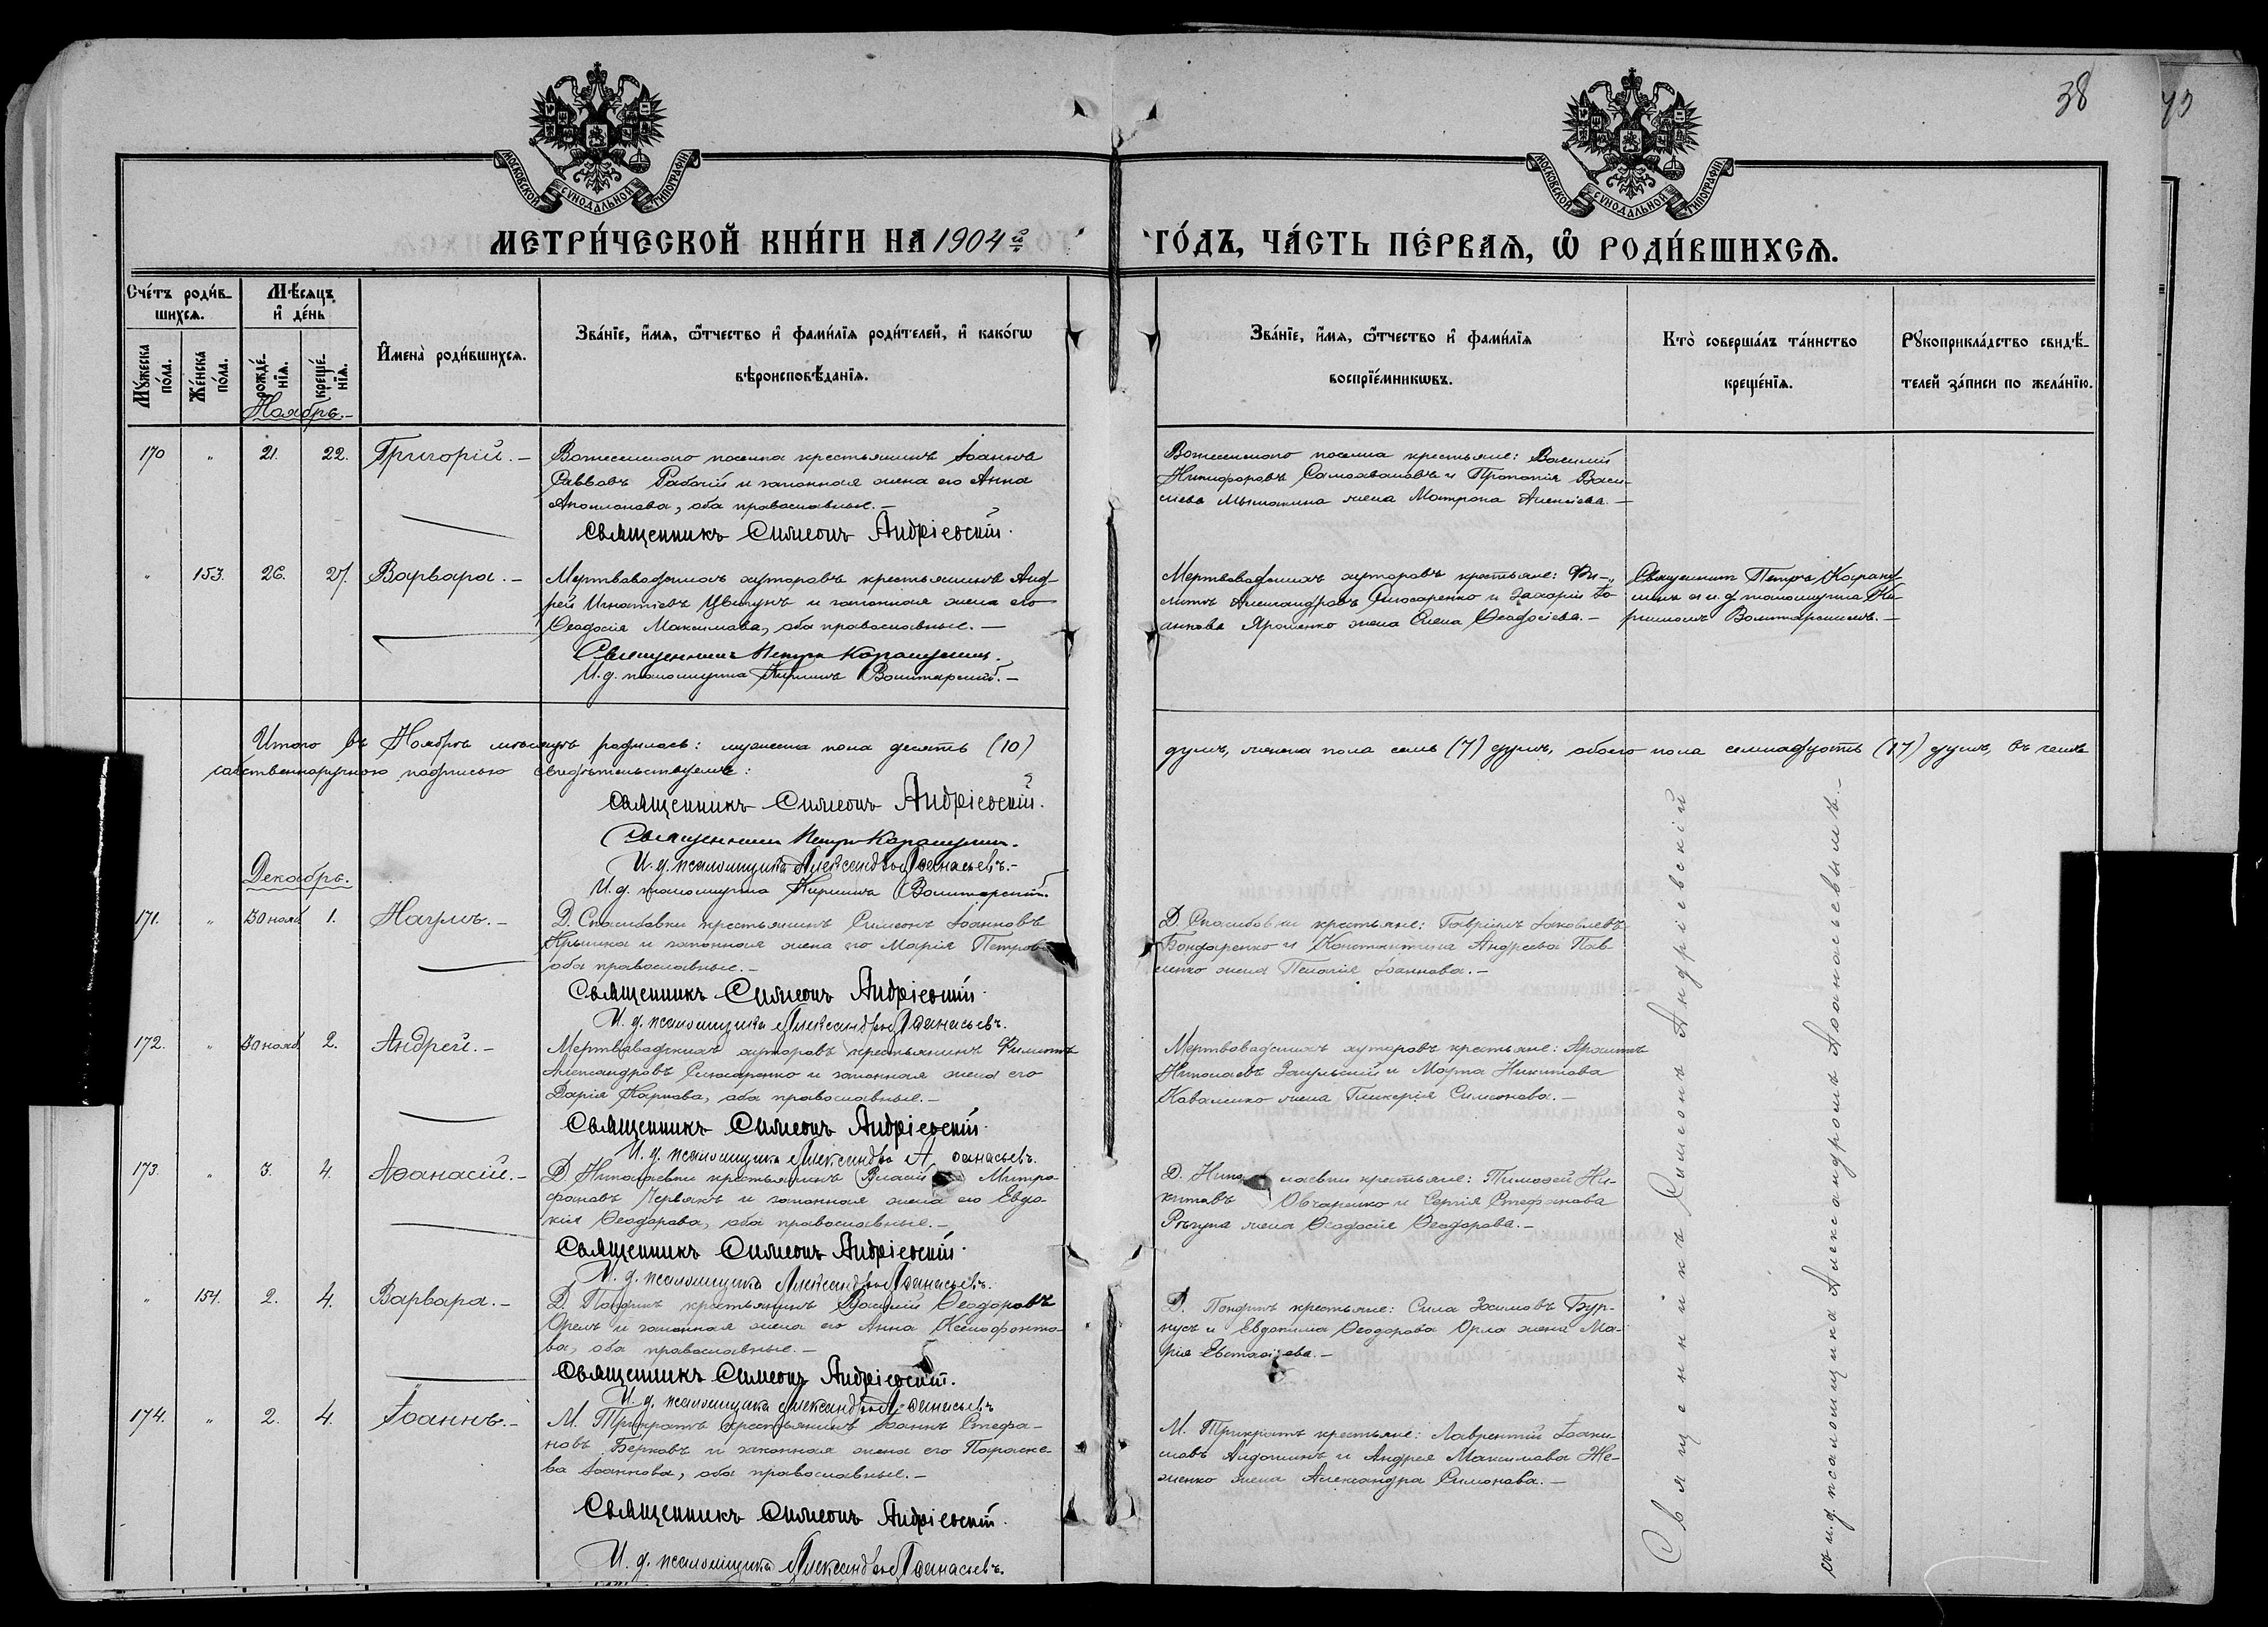 38
МОСКОВСКОЙ СѴНОДАЛЬНОЙ ТИПОГРАФІИ
МОСКОВСКОЙ СѴНОДАЛЬНОЙ ТИПОГРАФІИ
МЕТРИ́ЧЕСКОЙ КНИ́ГИ НА 1904 й
ГО́ДЪ, ЧА́СТЬ ПЕ́РВАѦ, Ѡ҆ РОДИ́ВШИХСѦ.
Сче́тъ роди́в-
шихсѧ.
Мѣ́сѧцъ
и҆ де́нь
Мꙋ́жеска по́ла.
Же́нска по́ла.
рожде́-
нїѧ.
креще́-
нїѧ.
И҆мена̀ роди́вшихсѧ.
Зва́нїе, и҆́мѧ, ѻ҆́тчество и҆ фами́лїѧ роди́телей, и҆ како́гѡ
вѣроисповѣ́данїѧ.
Зва́нїе, и҆́мѧ, ѻ҆́тчество и҆ фами́лїѧ
воспрїе́мникѡвъ.
Кто̀ соверша́лъ та́инство
креще́нїѧ.
Рꙋкоприкла́дство свидѣ́-
телей за́писи по жела́нїю.
Ноябрь.-
170 " 21. 22. Григорій.-
Вознесенского поселка крестьянинъ Іоаннъ
Саввовъ Рабочій и законная жена его Анна
Аполлонова, оба православные.-
Священникъ Симеонъ Андріевскій.
Вознесенского поселка крестьяне: Василій
Никифоровъ Самохваловъ и Прокопія Васи-
льева жена Матрона Алексіева.-
" 153. 26. 27. Варвара.-
Мертвоводскихъ хуторовъ крестьянинъ Анд-
рей Игнатіевъ Цвигунъ и законная жена его
Ѳеодосія Максимова, оба православные.-
Священникъ Петръ
И. д. псаломщика Кириллъ
Мертвоводскихъ хуторовъ крестьяне: Фи-
липпъ Александровъ Слюсаренко и Захарія Іо-
аннова Яроменко жена Елена Ѳеодосіева.-
Священникъ Петръ
и. д. псаломщика Ки-
рилломъ
Итого въ Ноябрѣ мѣсяцѣ родилось: мужеска пола десять (10)
душъ, женска пола семь (7) душъ, обоего пола семнадцать (17) душъ, въ чемъ
собственноручною подписью свидѣтельствуемъ:
Священникъ Симеонъ Андріевскій.
Священникъ Петръ
И. д. псаломщика Александръ Аѳанасьевъ.-
И. д. псаломщика Кириллъ
Декабрь.
171. " 30 нояб. 1. Наумъ.-
Д. Спасибовки крестьянинъ Симеонъ Іоанновъ
Крышка и законная жена его Марія Петрова
оба православные.-
Священникъ Симеонъ Андріевскій.
И. д. псаломщика Александръ Аѳанасьевъ.
Д. Спасибовки крестьяне: Гавріилъ Іаковлевъ
Бондаренко и Константина Андреева Пав-
ленко жена Пелагія Іоаннова.-
172. " 30 нояб. 2. Андрей.-
Мертвоводскихъ хуторовъ крестьянинъ Филиппъ
Александровъ Слюсаренко и законная жена его
Дарія Карпова, оба православные.-
Священникъ Симеонъ Андріевскій.
И. д. псаломщика Александръ Аѳанасьевъ.
Мертвоводскихъ хуторовъ крестьяне:
Николаевъ Загульскій и Марка Никитова
Коваленко жена Гликерія Симеонова.-
173. " 3. 4. Аѳанасій.-
Д. Николаевки крестьянинъ Власій Митро-
фановъ Червякъ и законная жена его Евдо-
кія Ѳеодорова, оба православные.-
Священникъ Симеонъ Андріевскій.
И. д. псаломщика Александръ Аѳанасьевъ.
Д. Николаевки крестьяне: Тимоѳей Ни-
китовъ Овчаренко и Сергія Стефанова
жена Ѳеодосія Ѳеодорова.-
" 154. 2. 4. Варвара.-
Д. крестьянинъ Василій Ѳеодоровъ
Орелъ и законная жена его Анна Ксенофонто-
ва, оба православные.-
Священникъ Симеонъ Андріевскій.
И. д. псаломщика Александръ Аѳанасьевъ
Д. крестьяне: Сила Бур-
и Евдокима Ѳеодорова Орла жена Ма-
рія Евстаѳіева.-
174. " 2. 4. Іоаннъ.-
М. Трикратъ крестьянинъ Іоаннъ Стефа-
новъ Берковъ и законная жена его Параске-
ва Іоаннова, оба православные.-
Священникъ Симеонъ Андріевскій.
И. д. псаломщика Александръ Аѳанасьевъ.
М. Трикратъ крестьяне: Лаврентій
и Андрея Максимова
жена Александра Симонова.-
Священникъ Симеонъ Андріевскій
съ и. д. псаломщика Александромъ Аѳанасьевымъ.-